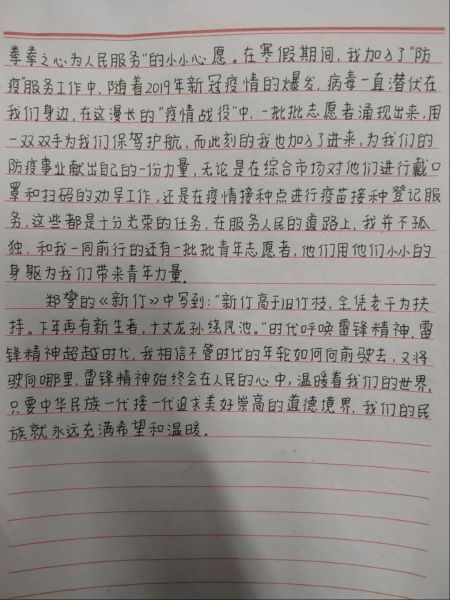 拳拳之心为人民服务"的小小心愿。在寒假期间，我加入了"防
疫"服务工作中，随着2019年新冠疫情的爆发，病毒一直潜伏在
我们身边，在这漫长的"疫情战役"中，一批批志愿者涌现出来，用
一双双手为我们保驾护航，而此刻的我也加入了进来，为我们的
防疫事业献出自己的一份力量，无论是在综合市场对他们进行戴口
罩和扫码的劝导工作，还是在疫情接种点进行疫苗接种登记服
务，这些都是十分光荣的任务，在服务人民的道路上，我并不孤
独，和我一同前行的还有一批批青年志愿者，他们用他们小小的
身躯为我们带来青年力量。
郑燮的《新竹》中写到："新竹高于旧竹枝，全凭老干为扶
持。下年再有新生者，十丈龙孙绕凤池。"时代呼唤雷锋精神，雷
锋精神超越时代，我相信不管时代的年轮如何向前驶去，又将
驶向哪里，雷锋精神始终会在人民的心中，温暖着我们的世界，
只要中华民族一代接一代追求美好崇高的道德境界，我们的民
族就永远充满希望和温暖。